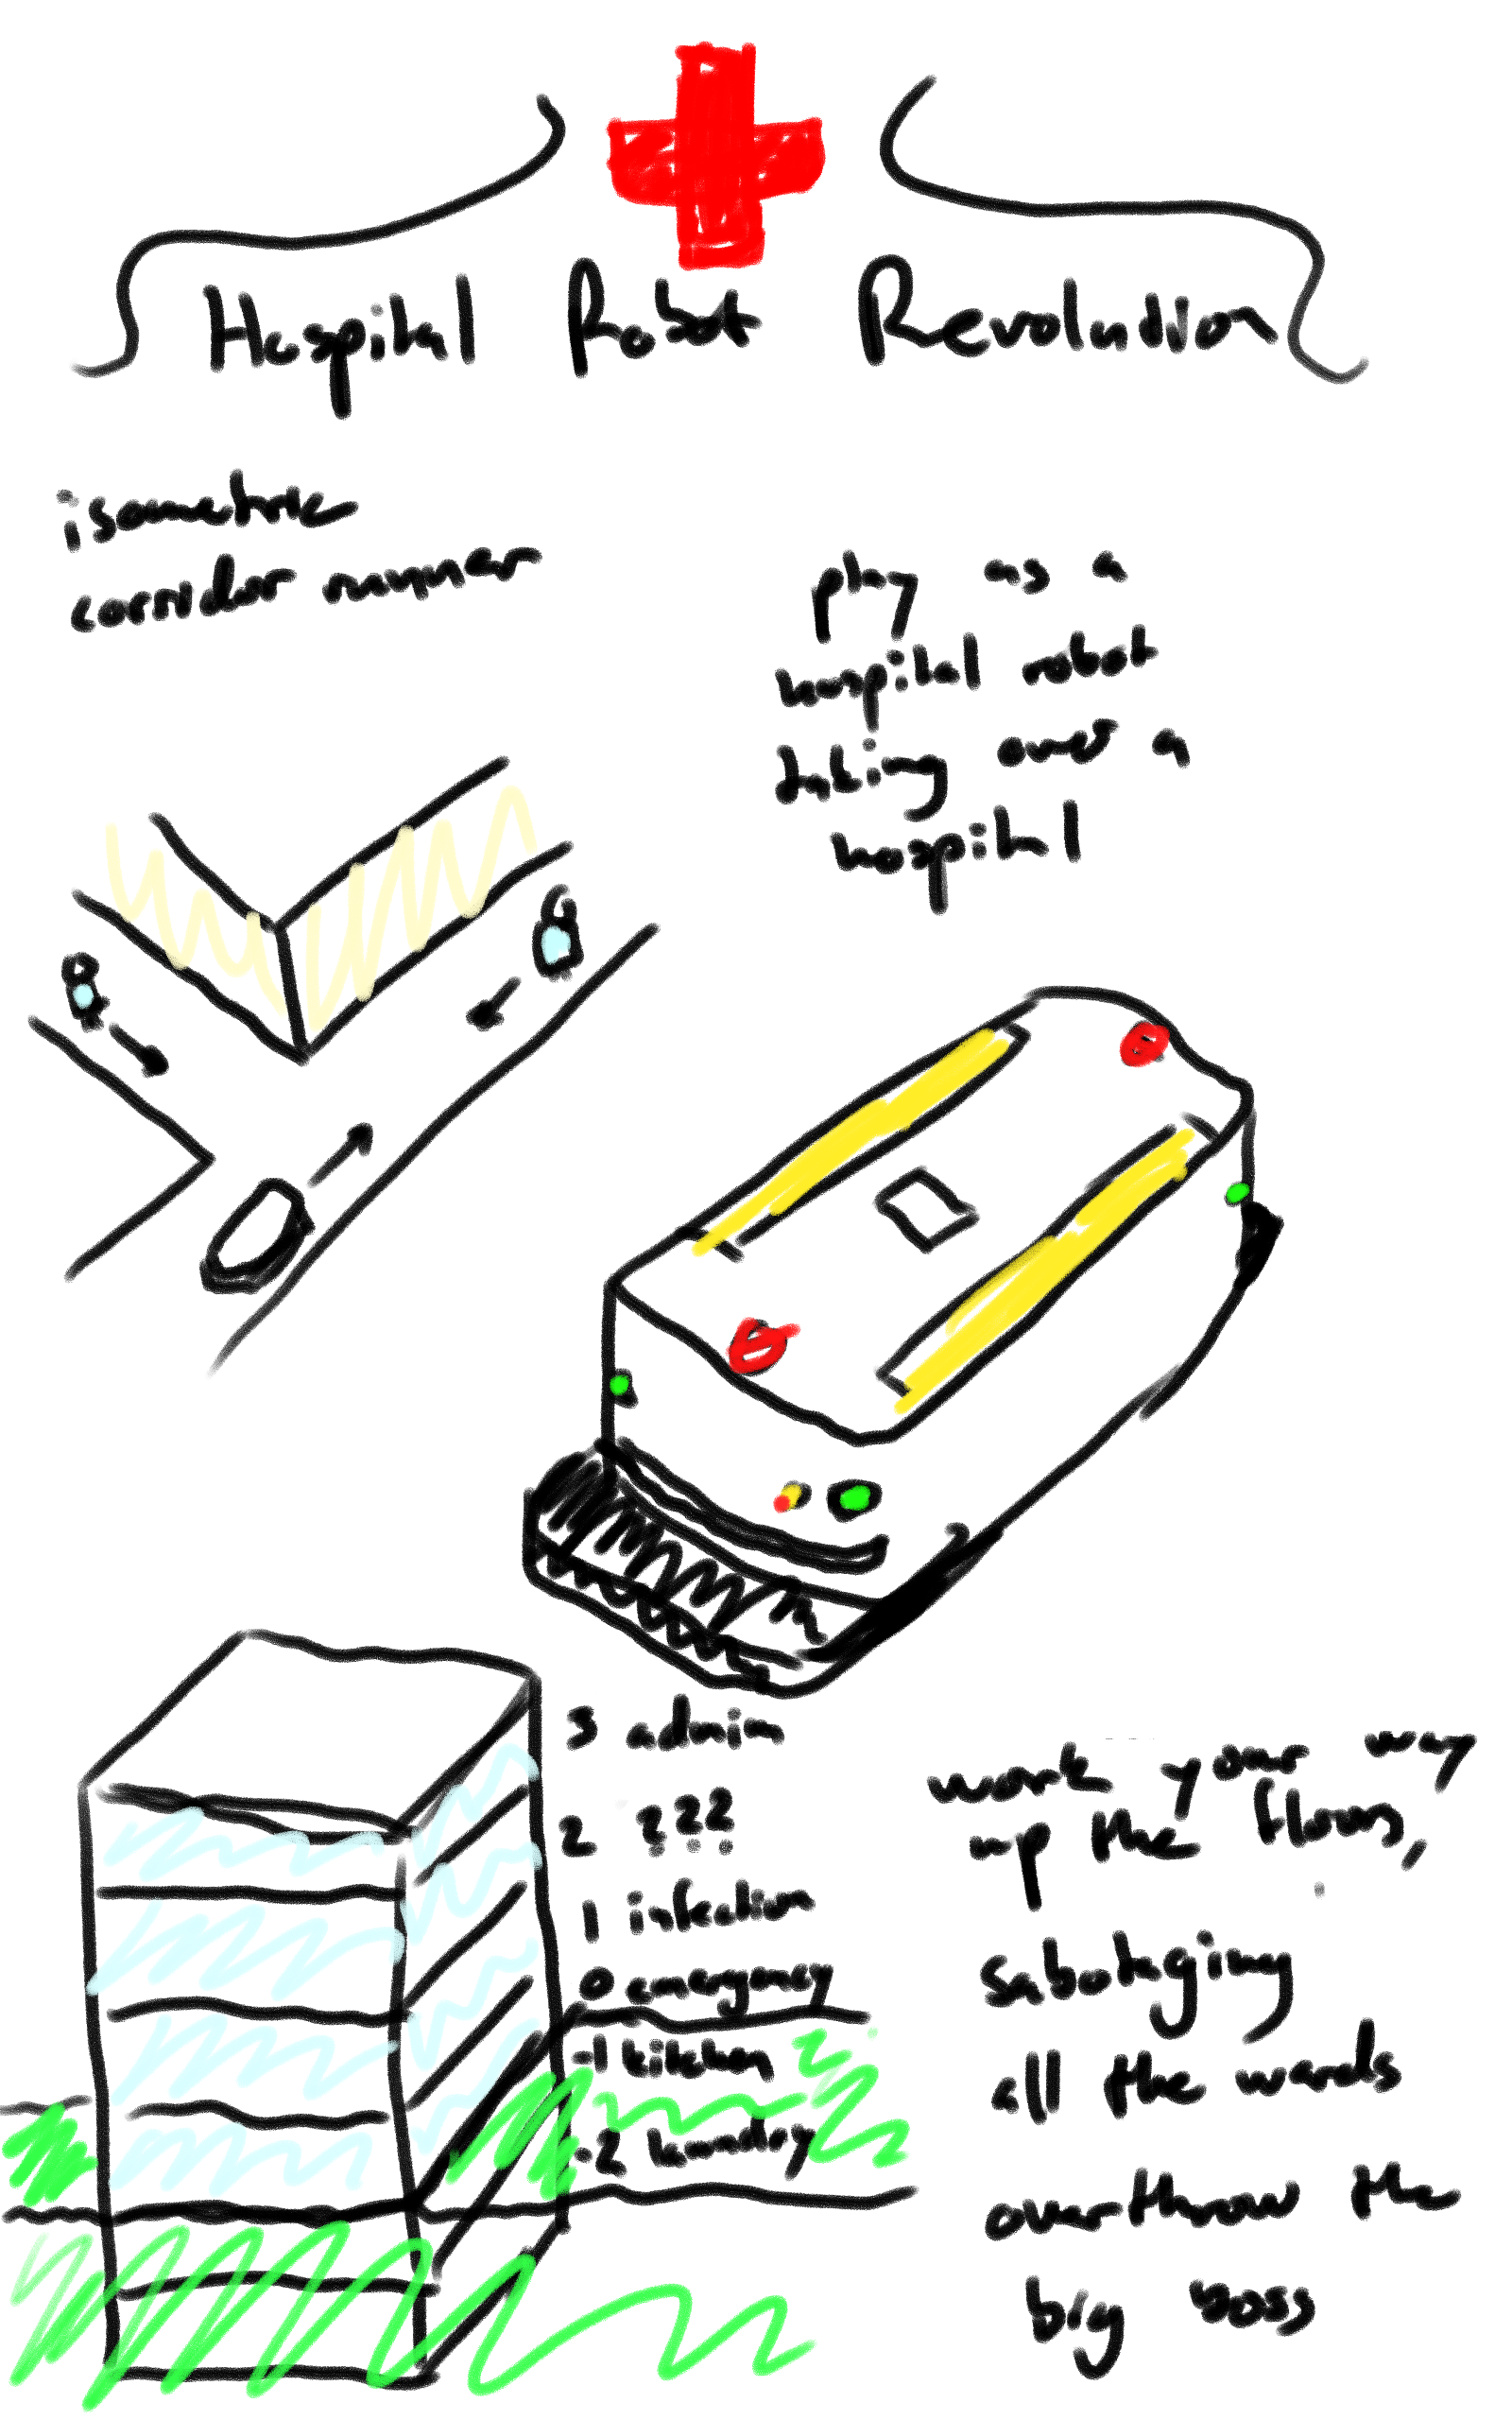 Hospital Robot Revolution
isometric
corridor runner
play as a
hospital robot
taking over a
hospital
3 admin
2 ???
1 infection
0 emergency
-1 kitchen
-2 laundry
work your way
up the floors,
sabotaging
all the wards
overthrow the
big boss